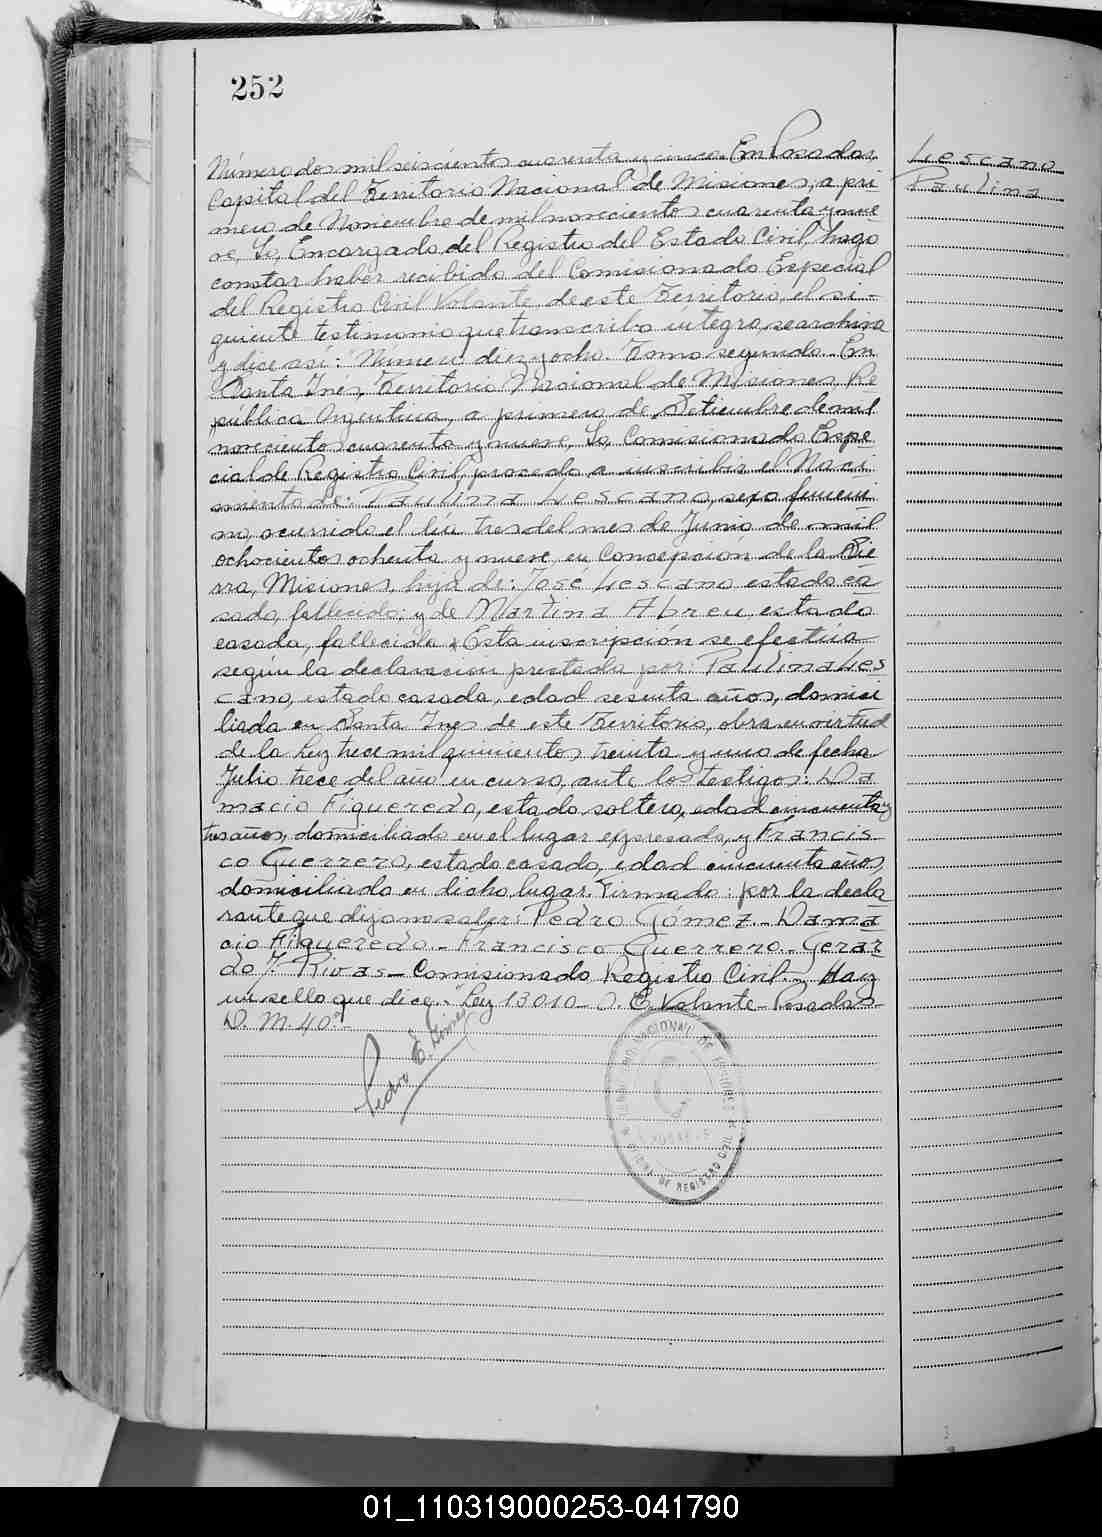 252
Lescano
Paulina
Número dos mil seiscientos cuarenta y cinco. En Posadas,
Capital del Territorio Nacional de Misiones, a pri
mero de Noviembre de mil novecientos cuarenta y nue
ve, Yo, Encargado del Registro del Estado Civil, hago
constar haber recibido del Comisionado Especial
del Registro Civil Volante de este Territorio, el si-
guiente testimonio que transcribo íntegro, se archiva
y dice así: "Número diez y ocho. Tomo segundo. En
Santa Ines, Territorio Nacional de Misiones, Re
pública Argentina, a primero de Setiembre de mil
novecientos cuarenta y nueve, Yo, Comisionado Espe
cial de Registro Civil, procedo a inscribir el Naci
miento de: Paulina Lescano, sexo femeni
no, ocurrido el día tres del mes de Junio de mil
ochocientos ochenta y nueve, en Concepción de la Sie
rra, Misiones, hija de: Jose Lescano estado ca
sado, fallecido; y de Martina Abreu, estado
casada, fallecida. Esta inscripción se efectúa
según la declaración prestada por: Paulina Les
cano, estado casada, edad sesenta años, domici
liada en Santa Ines de este Territorio, obra en virtud
de la Ley trece mil quinientos treinta y uno de fecha
Julio trece del año en curso, ante los testigos: Da
macio Figueredo, estado soltero, edad cincuenta y
tres años, domiciliado en el lugar expresado, y Francis
co Guerrero, estado casado, edad cincuenta años,
domiciliado en dicho lugar. Firmado: por la decla
rante que dijo no saber: Pedro Gómez.- Dama
cio Figueredo.- Francisco Guerrero.- Gerar
do J. Rivas- Comisionado Registro Civil.- Hay
un sello que dice:- "Ley 13010- O. E. Volante- Posadas-
D. M. 40ª"-
01_110319000253-041790